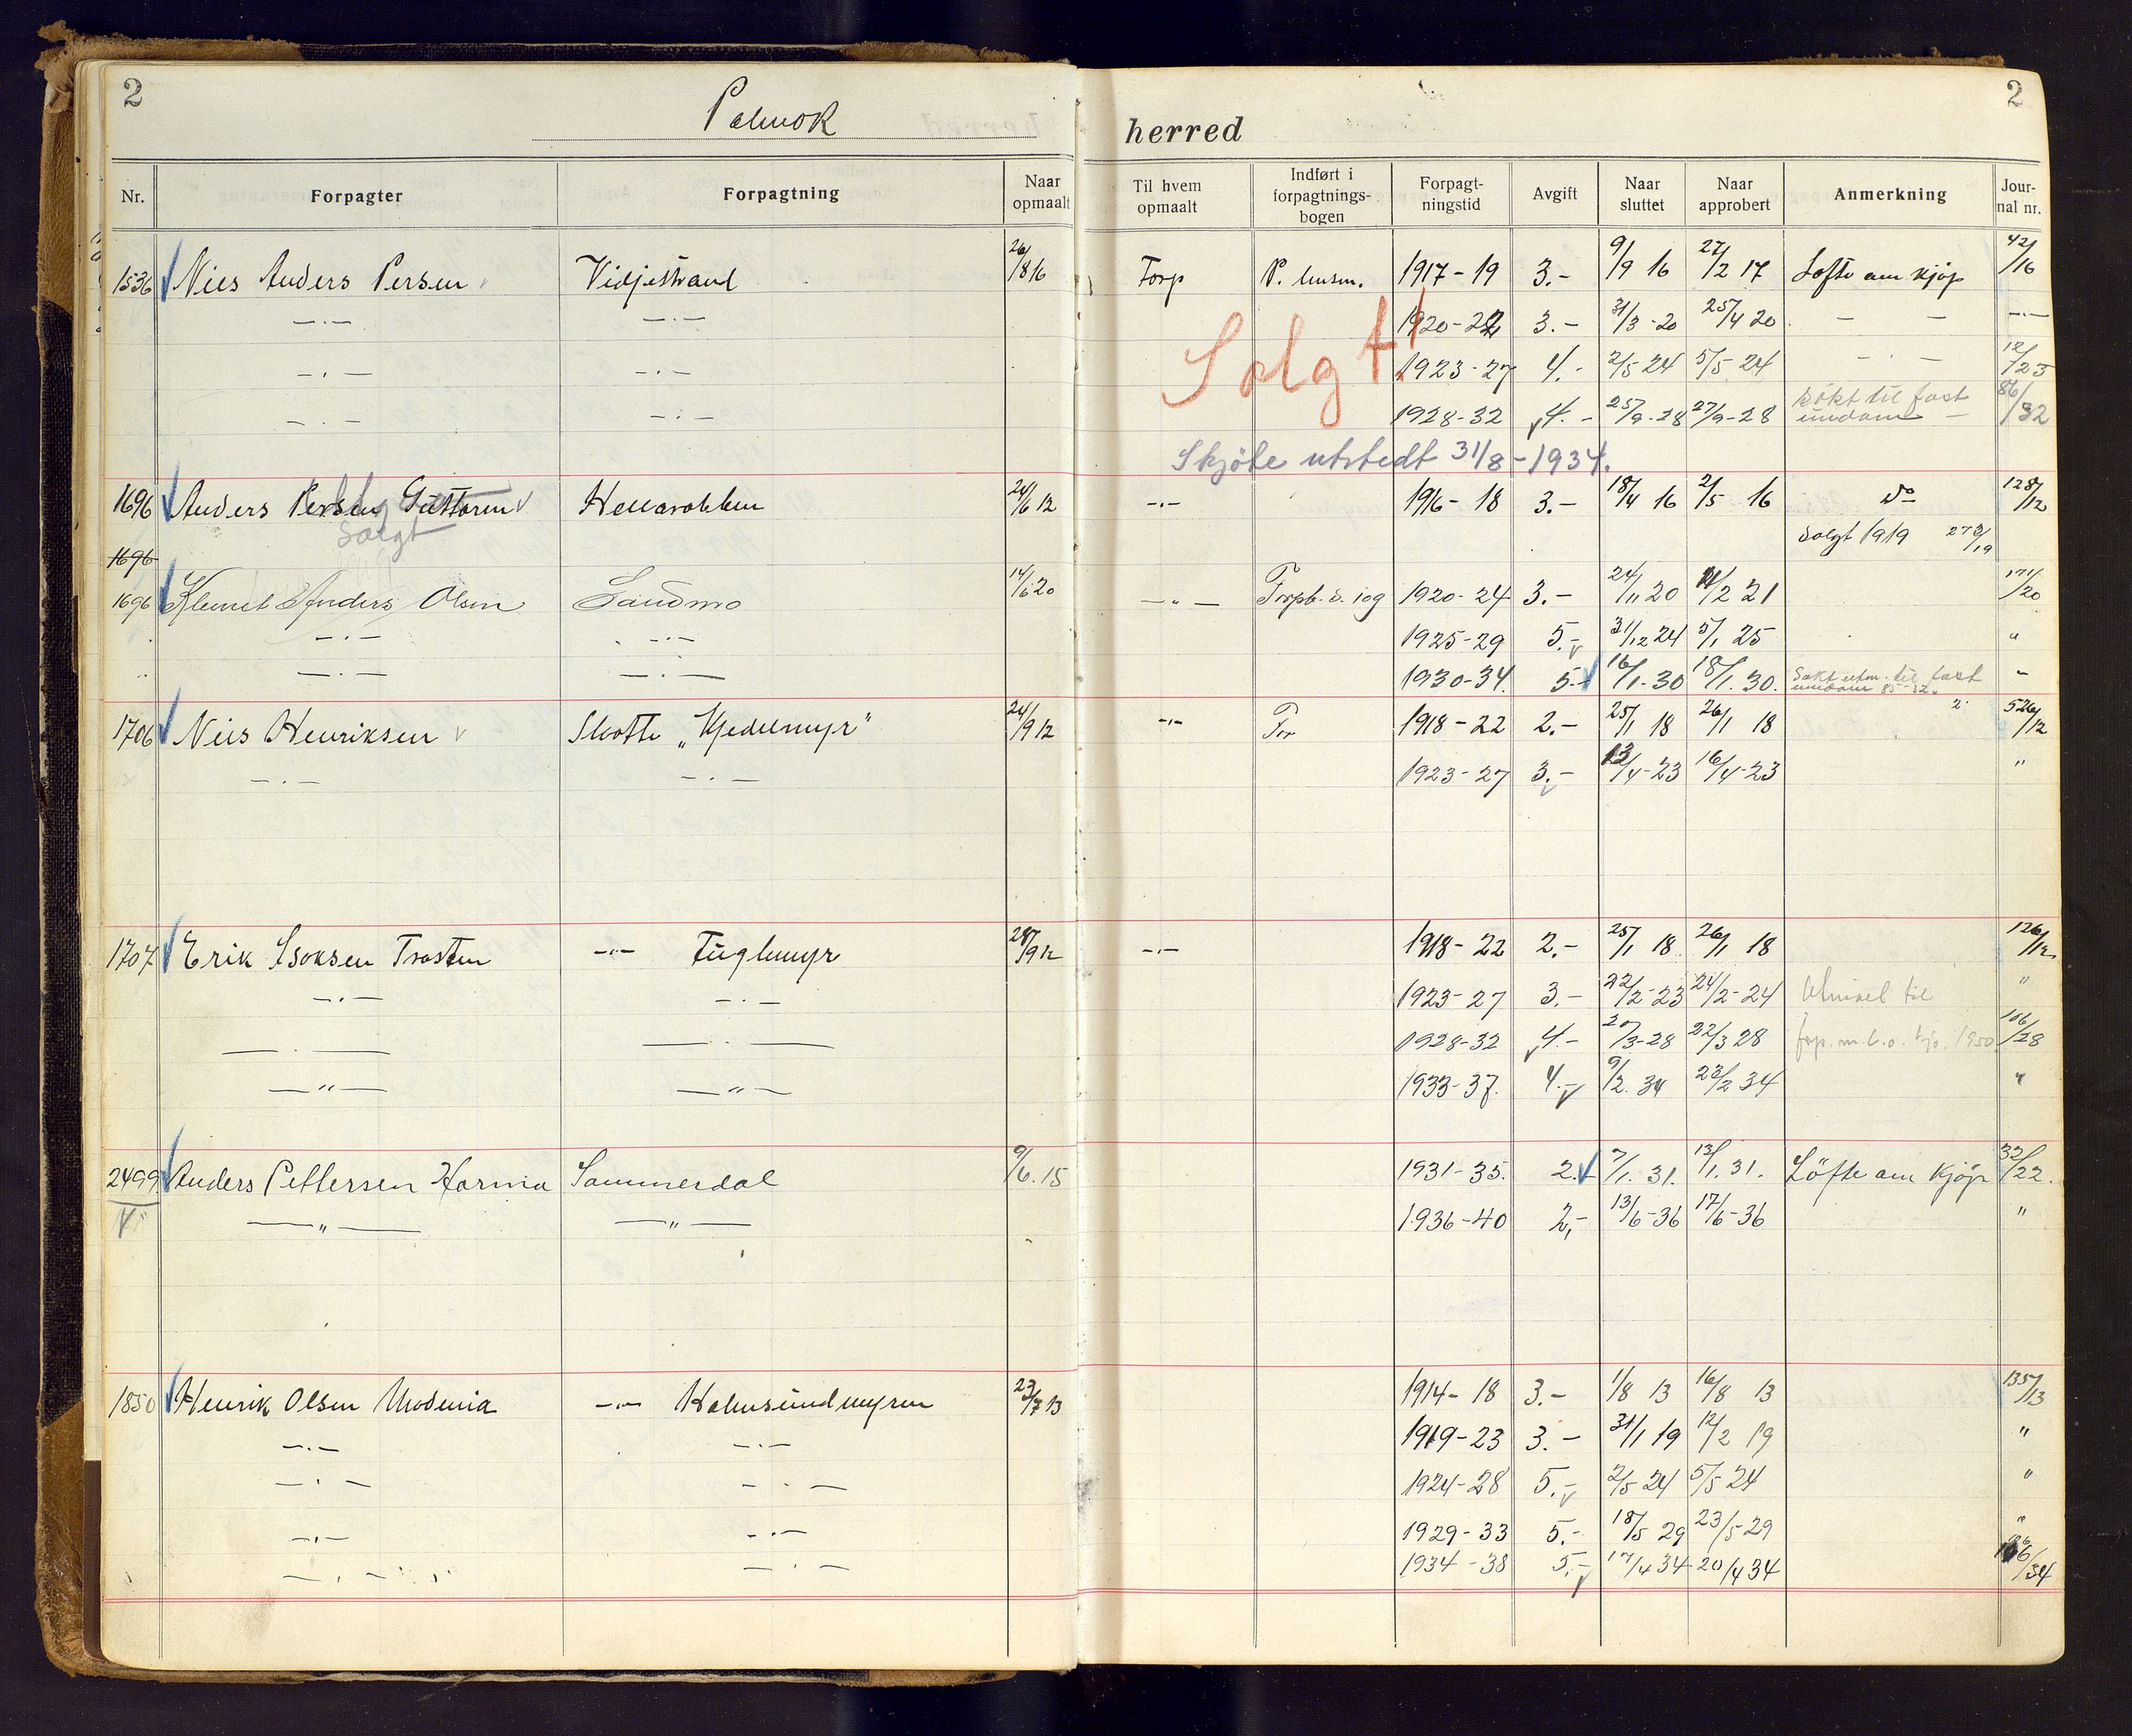 2 Polmok herred 2
Nr. Forpagter Forpagtning Naar opmaalt Til hvem opmaalt Indført i forpagtnings-bogen Forpagt-ningstid Avgift Naar sluttet Naar approbert Anmerkning Jour-nal nr.
1536 Nils Anders Persen Vidjestrand 26/8 16 Forp P. 1917-19 3.- 9/9 16 27/2 17 Løfte om kjøp 42/16
-.- -.- 1920-22 3.- 31/3-20 25/4 20 - - -.-
-.- -.- 1923-27 4.- 2/5 24 5/5 24 - . - 12/23
Solgt!
-.- -.- 1928-32 4.- 25/9-28 27/9-28 søkt til fast eiendom - 86/32
Skjøte utstedt 31/8-1934.
1696 Anders Persen Guttorm Hellarokken 24/6 12 -.- 1916-18 3.- 18/4 16 2/5 16 do 128/12
Solgt Solgt 1919 273/19
1696
1696 Klemet Anders Olsen Sandmo 14/6 20 -„- Forpb. s. 109 1920-24 3.- 24/11 20 /2 21 171/20
-.- -.- 1925-29 5.- 31/12 24 5/1 25 "
-.- -.- 1930-34. 5.- 16/1.30 18/1.30. til fast eiendom 85-32. "
1706 Nils Henriksen Slotte „Kjedelmyr" 24/9 12 -.- For 1918-22 2.- 25/1 18 26/1 18 526/12
-.- -.- 1923-27 3.- 13/4-23 16/4-23 "
1707 Erik Isaksen Trosten -.- Fuglemyr 28/9 12 -.- 1918-22 2.- 25/1 18 26/1 18 126/12
-.- -.- 1923-27 3.- 22/2-23 24/2-24 til "
-.- -.- 1928-32 4.- 20/3-28 22/3 28 1950 106/28
-"- -"- 1933-37. 4.- 9/2.34 23/2 34 "
2499 Anders Pettersen Harma Sommerdal 9/6.15 1931-35. 2.- 7/1.31. 13/1.31. Löfte om kjøp 32/22.
-"- -"- 1936-40 2,- 13/6-36 17/6-36 "
1850 Henrik Olsen Modenia -.- Holmsundmyren 23/7 13 1914-18 3.- 1/8 13 16/8 13 135/13
-.- -.- 1919-23 3.- 31/1 19 12/2 19 "
-.- -.- 1924-28 5.- 2/5 24 5/5 24 "
-.- -.- 1929-33 5.- 18/5 29 23/5-29 "
-.- -.- 1934-38 5.- 17/4 34 20/4 34 /34